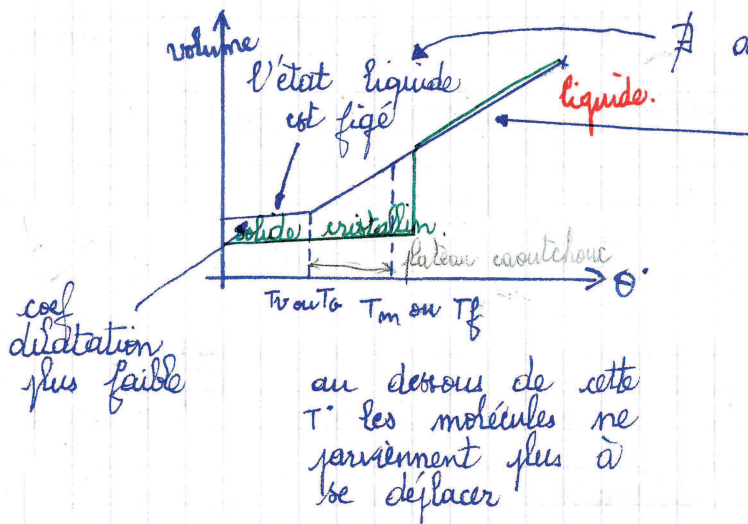 volume
∄ a
l'état liquide
est figé
liquide.
solide cristallin.
plateau caoutchouc
θ°
Tv ou TG
Tm ou Tf
coef
dilatation
plus faible
au dessous de cette
T° les molécules ne
parviennent plus à
se déplacer